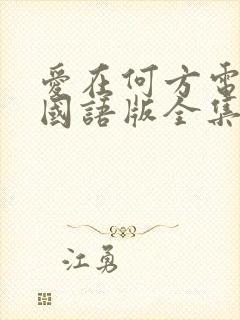 愛在何方電
國語版全集
江勇